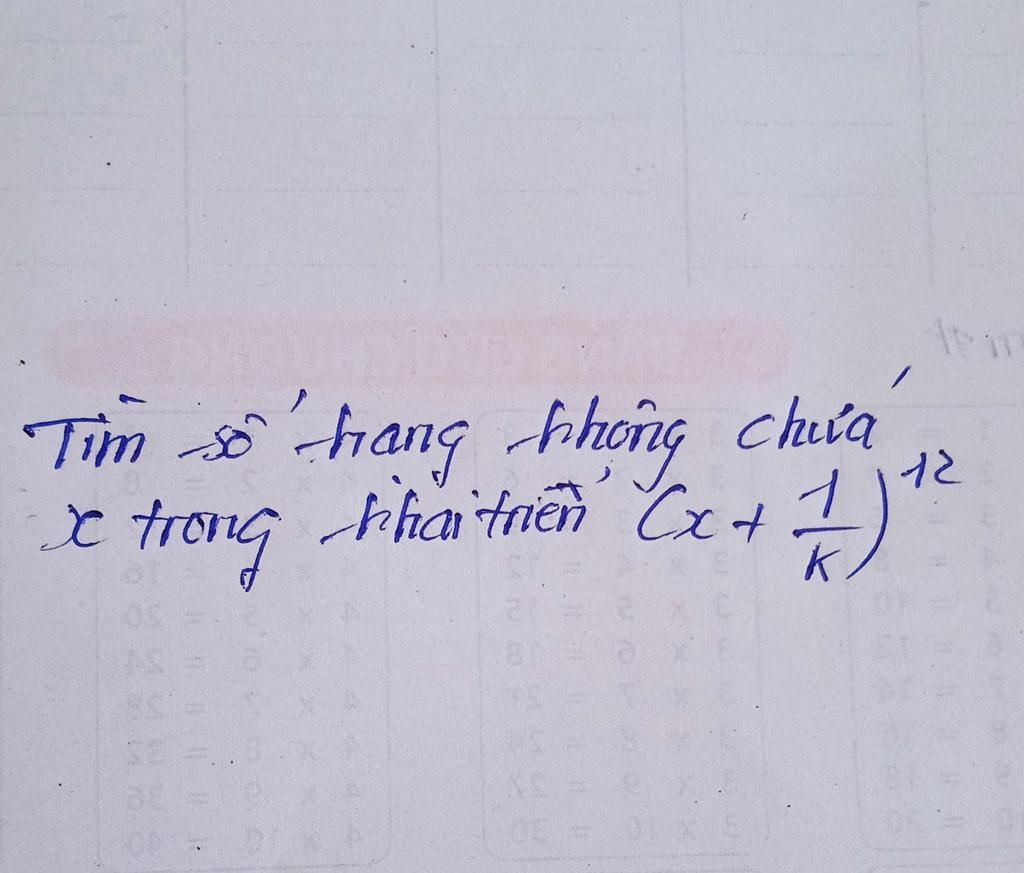 Tìm số hạng không chứa
x trong khai triển (x + 1/k)^12